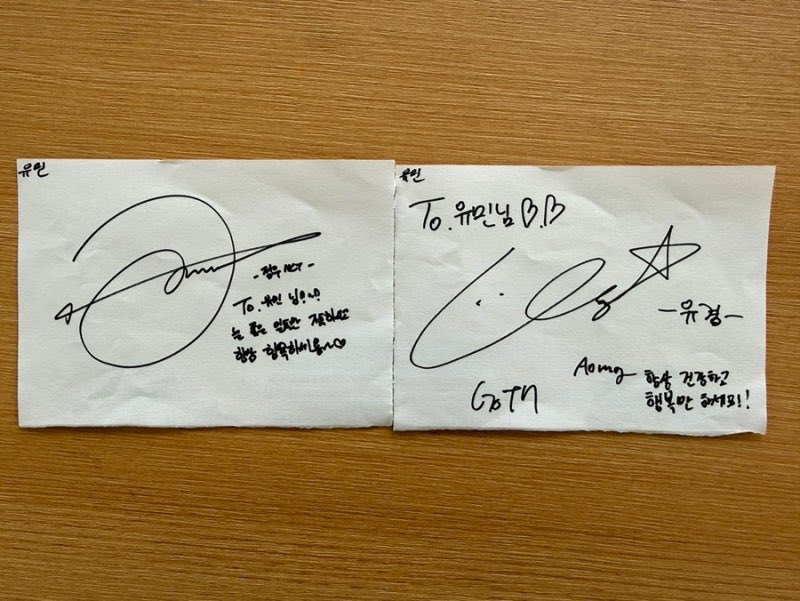 유민
-정우 NCT-
To. 유민 님!~!
늘 좋은 일만
항상 행복하세용~♡
유민
To. 유민님 ♡.♡
-유경-
Aomg
항상 건강하고
행복만 하세요!!